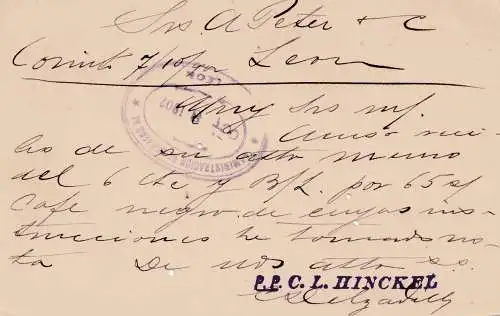 Srs A Peter & C
Corinto 7/10/902 Leon
Muy Srs ms.
Acuso reci
bo de su atto memo
del 6 cte y B/L. por 65 s/
Cafe negro de cuyas ins
trucciones he tomado no
ta De Uds atto S.S.
P.P. C. L. HINCKEL
ADMINISTRACION
LEON
OCT 8 1902